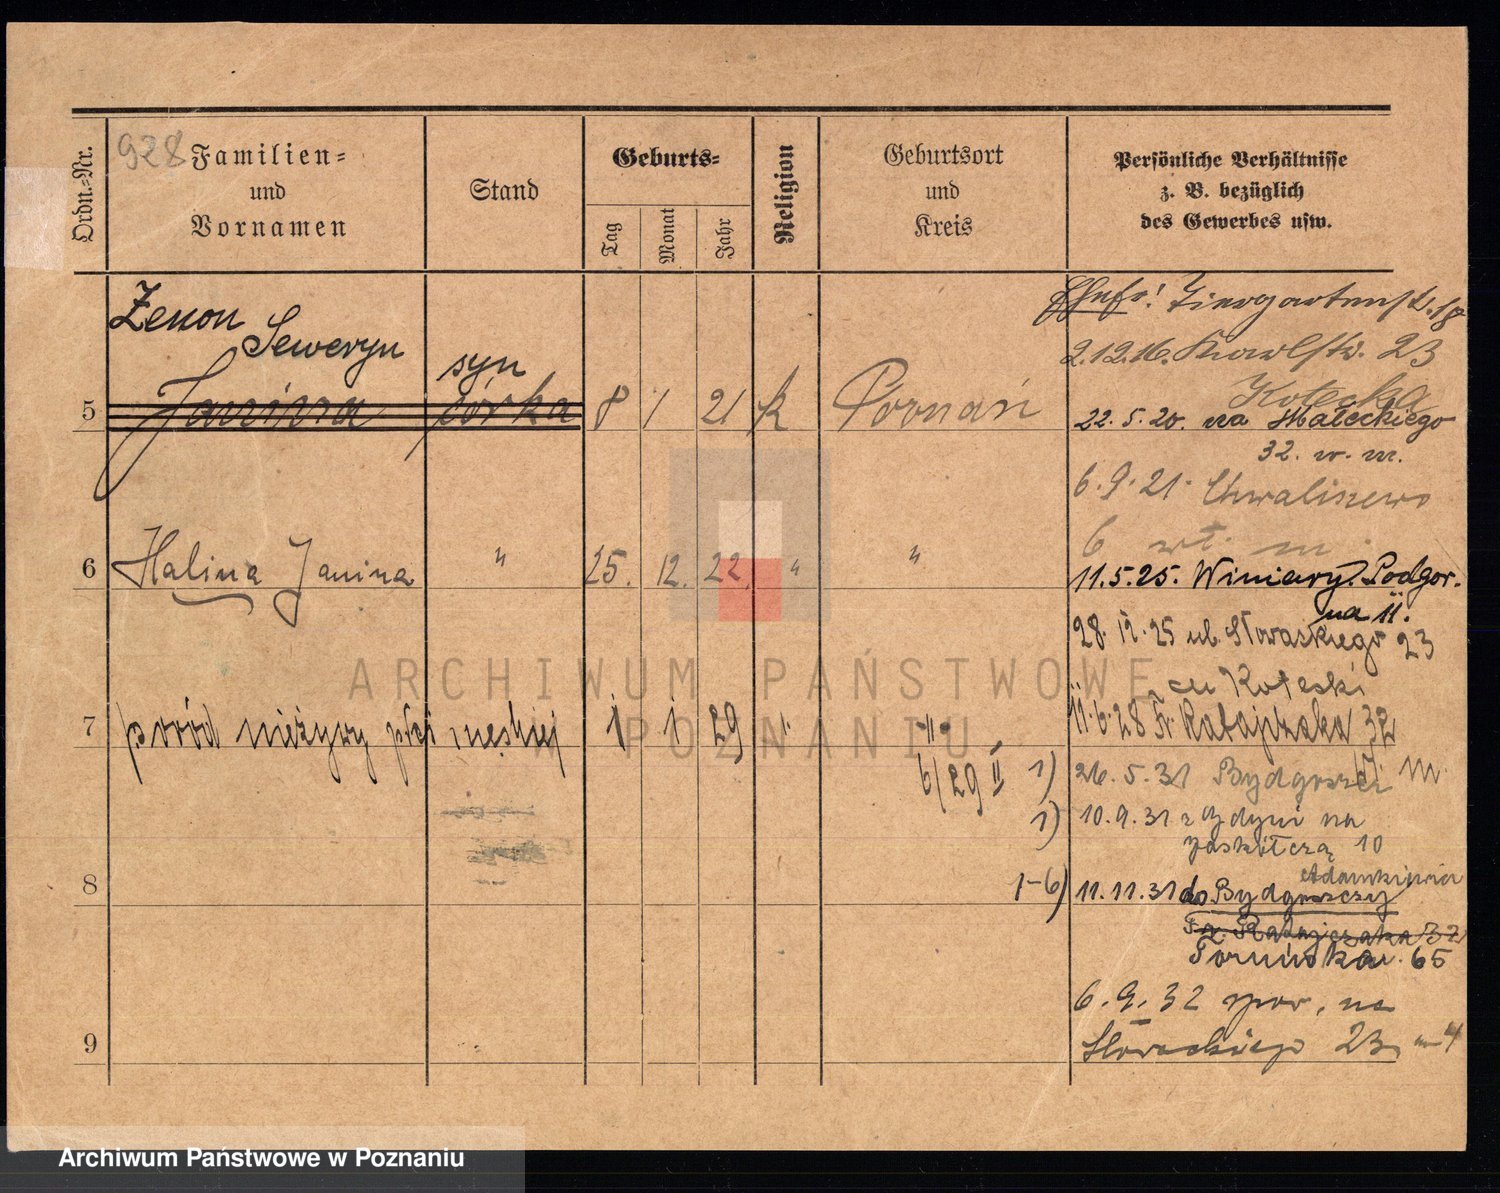 928
Ordn.=Nr.
Familien=
und
Vornamen
Stand
Geburts=
Tag
Monat
Jahr
Religion
Geburtsort
und
Kreis
Persönliche Verhältnisse
z. B. bezüglich
des Gewerbes usw.
Zenon
Seweryn
syn
5 Janina córka 8 1 21 k Poznań
6 Halina Janina " 25. 12. 22. " "
7 poród nieżywy płci męskiej 1 1 29 " -"-
6/29 II
8
9
Tiergartenstr. 18
2.12.16. 23
Kotecka
22.5.20. na Małeckiego
32. w. m.
6.9.21. Chwaliszewo
6 wł. m.
11.5.25. Winiary Podgor.
na 11.
28. 12. 25 ul. Słowackiego 23
cu Koteski
11.6.28 Fr. Ratajczaka 32
W. m.
1) 26.5.31 Bydgoszcz
1) 10.9.31 z Gdyni na
Jaskółczą 10
Adamkiewicz
1-6) 11.11.31 do Bydgoszczy
Fr. Ratajczaka 32
Toruńska 65
6.9.32 spow. na
Słowackiego 23 m 4
ARCHIWUM PAŃSTWOWE
W POZNANIU
Archiwum Państwowe w Poznaniu